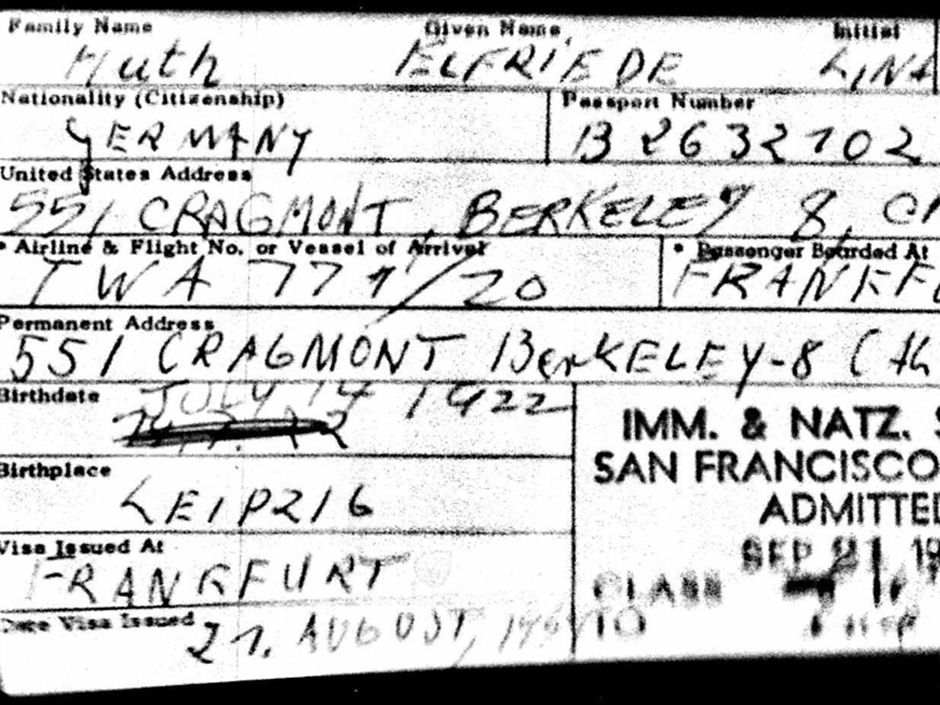 Family Name Given Name Initial
Huth ELFRIEDE LINA
Nationality (Citizenship) Passport Number
GERMANY B 2632702
United States Address
551 CRAGMONT, BERKELEY 8, CA
Airline & Flight No. or Vessel of Arrival • Passenger Boarded At
TWA 771/20 FRANKFU
Permanent Address
551 CRAGMONT BerKELEY-8
Birthdate JULY 14 1922
Birthplace
LEIPZIG
Visa Issued At
FRANKFURT
Date Visa Issued
21. AUGUST,
IMM. & NATZ. S
SAN FRANCISCO
ADMITTED
SEP 21 19
CLASS
TO